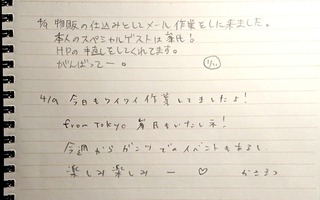 4/6 物販の仕込みとしてメール作業をした来ました。
本人のスペシャルゲストは
HPの手直しをしてくれてます。
がんばってー。
4/9 今日もワイワイ作業してましたよ!
from TOKYO 毎日もいたしネ!
今週からガンツでのイベントもあるし
楽しみ楽しみ ー ♡